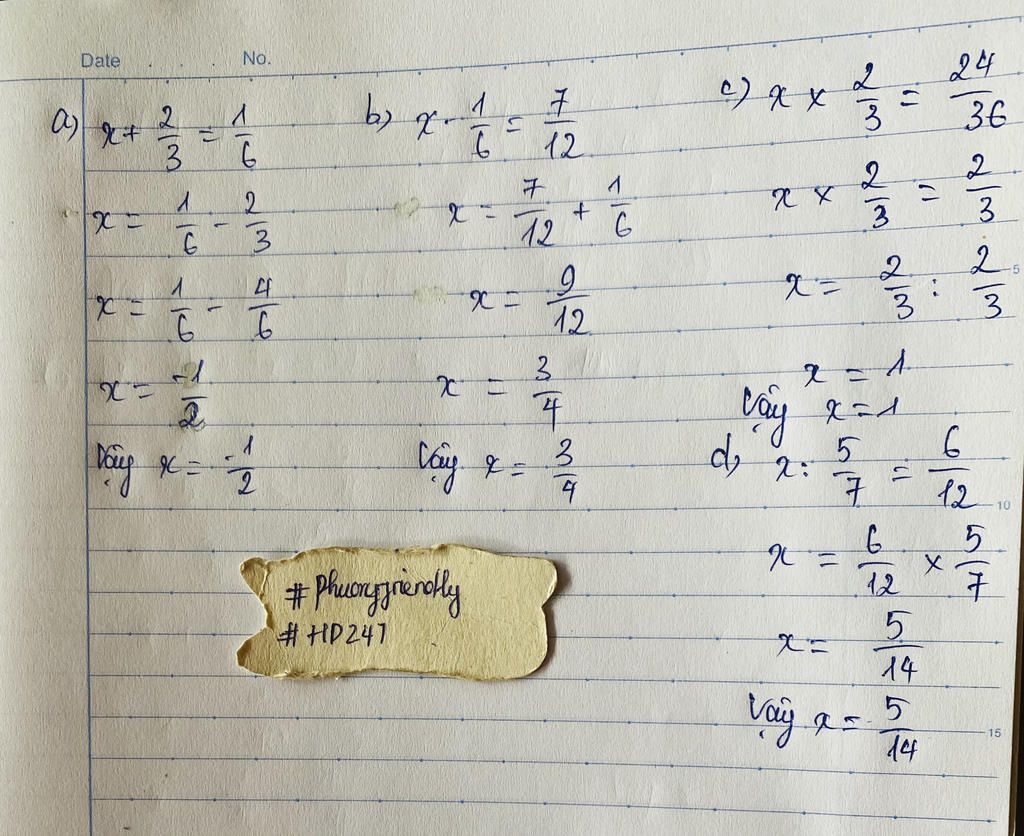 Date . . . . No.
a) x + 2/3 = 1/6
x = 1/6 - 2/3
x = 1/6 - 4/6
x = -1/2
Vậy x = -1/2
b) x - 1/6 = 7/12
x = 7/12 + 1/6
x = 9/12
x = 3/4
Vậy x = 3/4
c) x × 2/3 = 24/36
x × 2/3 = 2/3
x = 2/3 : 2/3
x = 1
Vậy x = 1
d) x : 5/7 = 6/12
x = 6/12 × 5/7
x = 5/14
Vậy x = 5/14
5
10
15
# Phuongfriendly
# HD247